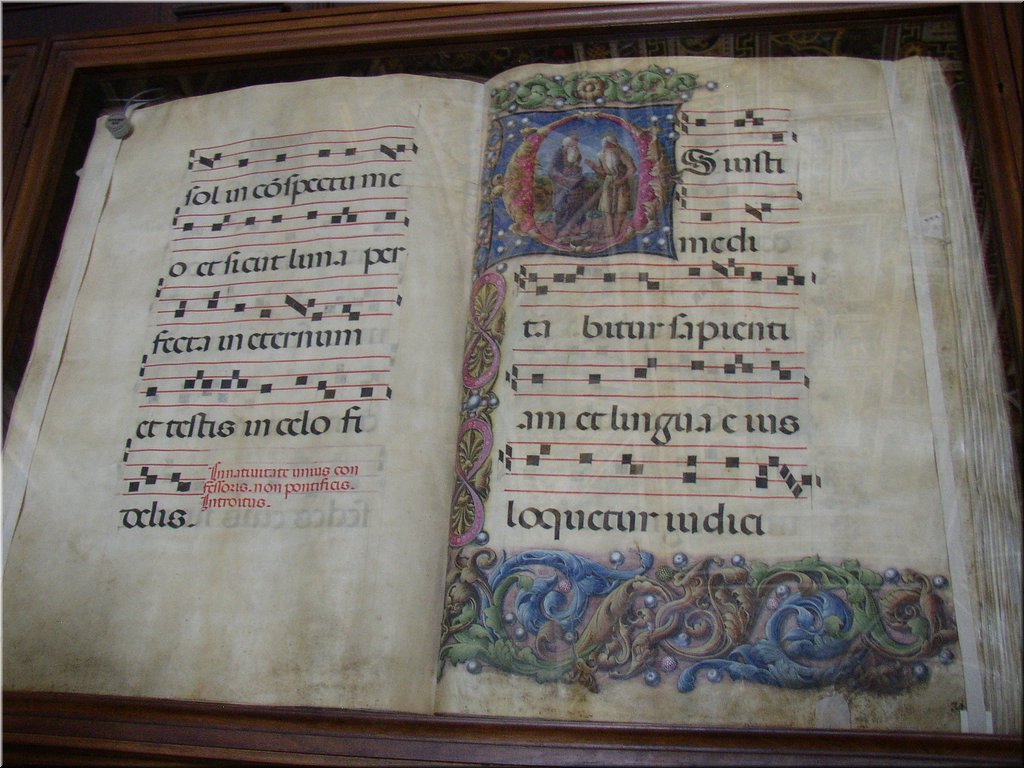 sol in cōspectu me
o et sicut luna per
fecta in eternum
et testis in celo fi
delis.
In natiuitate unius con
fessoris. non pontificis.
Introitus.
OS iusti
medi
ta bitur sapienti
am et lingua e ius
loquetur iudici